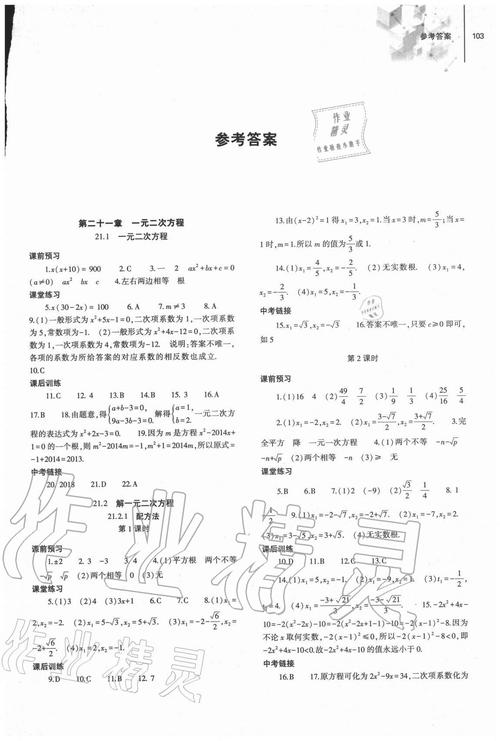 参考答案 103
参考答案
作业
精灵
作业检查小助手
第二十一章 一元二次方程
21.1 一元二次方程
课前预习
1.x(x+10)=900 2.C 3.一 2 ax²+bx+c=0
(a≠0) ax² bx c 4.左右两边相等 根
课堂练习
5.x(30-2x)=100 6.A 7.m≠3 8.A
9.(1)一般形式为x²+5x-1=0,二次项系数为1,一次项系数
为5,常数项为-1. (2)一般形式为x²+4x-12=0,二次项系
数为1,一次项系数为4,常数项为-12. 说明:答案不唯一,
各项的系数为所给答案的对应系数的相反数也成立.
10.C
课后训练
11.C 12.4 13.B 14.B 15.3 16.A
17.B 18.由题意,得{a+b-3=0, 9a-3b-3=0. 解得{a=1, b=2. 一元二次方
程的表达式为x²+2x-3=0. 19.因为m是方程x²-2014x+
1=0的一个根,则m²-2014m=-1,m²+1=2014m,所以原式=
-1+2014=2013.
中考链接
20.2018 21.D 22.A
21.2 解一元二次方程
21.2.1 配方法
第1课时
课前预习
1.±2 2.3 -3 3.4 4.(1)平方根 两个不等
-√p √p (2)两个相等 0 (3)无
课堂练习
5.(1)3 (2)4 (3)3x+1 6.C 7.C 8.(1)x₁=
2,x₂=-2. (2)x₁=5-√3,x₂=5+√3. (3)x₁=-2-√6/2,x₂=
-2+√6/2. (4)x₁=2,x₂=-1.
课后训练
9.D 10.C 11.B 12.7
13.由(x-2)²=1得x₁=3,x₂=1.当x=3时,m=5/3;当x=
1时,m=1.所以m的值为5/3或1.
14.(1)x₁=4/5,x₂=-2/5. (2)无实数根. (3)x₁=4,
x₂=-2/3. (4)x₁=5,x₂=-1/3.
中考链接
15.x₁=√3,x₂=-√3 16.答案不唯一,只要c≥0即可,
如5
第2课时
课前预习
1.(1)16 4 (2)49/4 7/2 (3)1/9 1/3 (4)25/16 5/4
2.(1)x₁=-2,x₂=2. (2)x₁=3-√7/2,x₂=3+√7/2. 3.完
全平方 降 一元一次方程 4.(1)两个不等 -n-√p
-n+√p (2)两个相等 -n (3)≥ 无
课堂练习
5.B 6.B 7.(1) (-9) (2)√3/2 1/4 8.1
9.(1)x₁=-2-√7,x₂=-2+√7. (2)
x₁=3-√5,x₂=3+√5. (4)无实数根.
课后训练
10.D 11.A 12.C 13.C
14.(1)x₁=5,x₂=-1. (2)x₁=-9,x₂=1. (3)x₁=-1/2,
x₂=4. (4)x₁=-3+√21/3,x₂=-3-√21/3. 15.-2x²+4x-
10=-2(x²-2x)-10=-2(x²-2x+1-1)-10=-2(x-1)²-8.因为
不论x取何实数,-2(x-1)²≤0,所以-2(x-1)²-8<0,即
-2x²+4x-10<0.故-2x²+4x-10的值永远小于0.
中考链接
16.B 17.原方程可化为2x²-9x=34,二次项系数化为
作业精灵
作业精灵